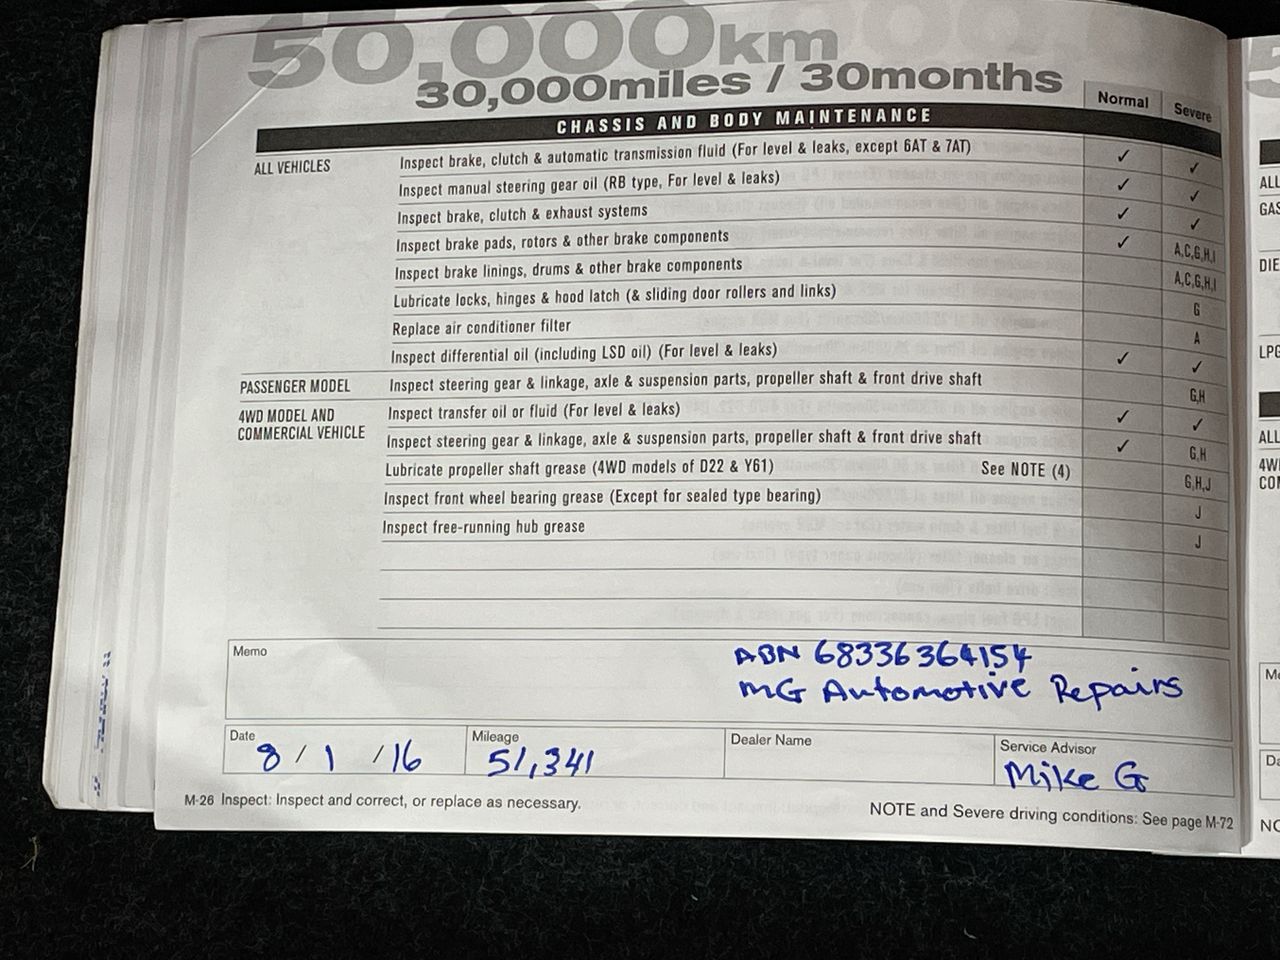 50,000km
30,000miles / 30months
Normal Severe
CHASSIS AND BODY MAINTENANCE
ALL VEHICLES Inspect brake, clutch & automatic transmission fluid (For level & leaks, except 6AT & 7AT) ✓ ✓
Inspect manual steering gear oil (RB type, For level & leaks) ✓ ✓
Inspect brake, clutch & exhaust systems ✓ ✓
Inspect brake pads, rotors & other brake components ✓ A,C,G,H,I
Inspect brake linings, drums & other brake components A,C,G,H,I
Lubricate locks, hinges & hood latch (& sliding door rollers and links) G
Replace air conditioner filter A
Inspect differential oil (including LSD oil) (For level & leaks) ✓ ✓
PASSENGER MODEL Inspect steering gear & linkage, axle & suspension parts, propeller shaft & front drive shaft G,H
4WD MODEL AND Inspect transfer oil or fluid (For level & leaks) ✓ ✓
COMMERCIAL VEHICLE Inspect steering gear & linkage, axle & suspension parts, propeller shaft & front drive shaft ✓ G,H
Lubricate propeller shaft grease (4WD models of D22 & Y61) See NOTE (4) G,H,J
Inspect front wheel bearing grease (Except for sealed type bearing) J
Inspect free-running hub grease J
Memo
ABN 68336364154
MG Automotive Repairs
Date Mileage Dealer Name Service Advisor
8 / 1 / 16 51,341 Mike G
M-26 Inspect: Inspect and correct, or replace as necessary.
NOTE and Severe driving conditions: See page M-72
ALL
GAS
DIE
LPG
ALL
4W
CO
Me
Da
NO